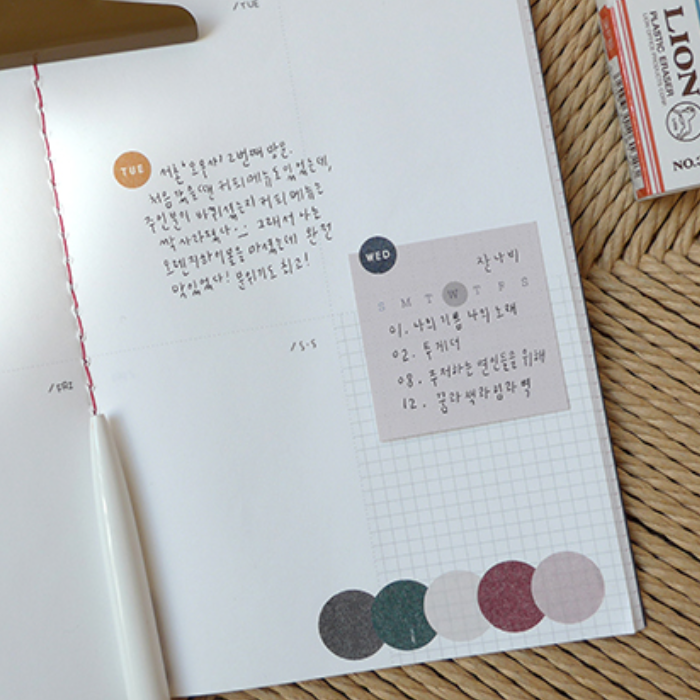 /TUE
TUE
서촌 '오무사' 2번째 방문.
처음 갔을 땐 커피메뉴도 있었는데,
주인분이 바뀌셨는지 커피 메뉴는
싹 사라졌다.. 그래서 나는
오렌지와이볼을 마셨는데 완전
맛있었다! 분위기도 최고!
WED
잔나비
S M T W T F S
01. 나의 기쁨 나의 노래
02. 투게더
08. 주저하는 연인들을 위해
12. 꿈과 책과 힘과 벽
/S·S
/FRI
LION
PLASTIC ERASER
LION OFFICE PRODUCTS CORP.
NO.